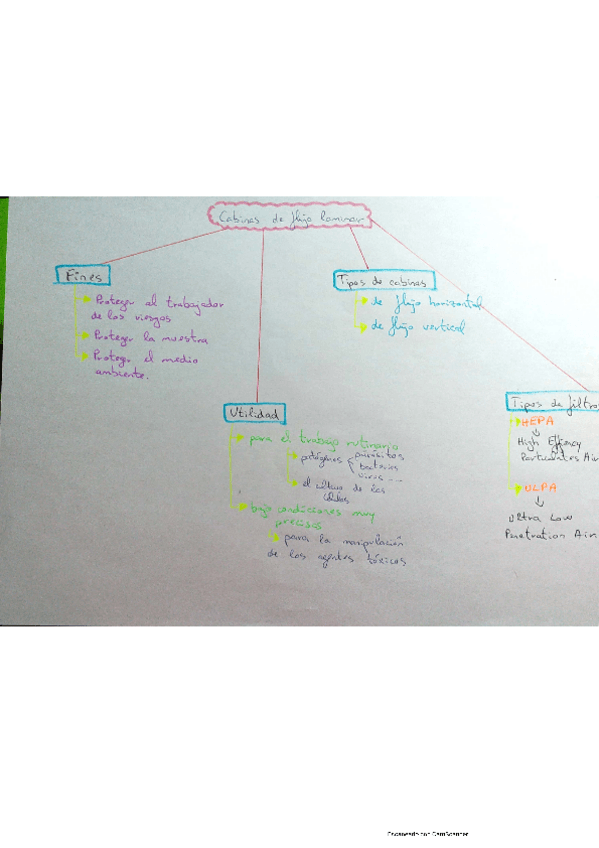 Cabinas de flujo laminar
Fines
Proteger al trabajador
de los riesgos
Proteger la muestra
Proteger el medio
ambiente.
Tipos de cabinas
de flujo horizontal
de flujo vertical
Utilidad
para el trabajo rutinario
patógenos
parásitos
bacterias
virus ...
el cultivo de las
células
bajo condiciones muy
precisas
para la manipulación
de los agentes tóxicos
Tipos de filtros
HEPA
High
Particulates Air
ULPA
Ultra Low
Penetration Air
Escaneado con CamScanner